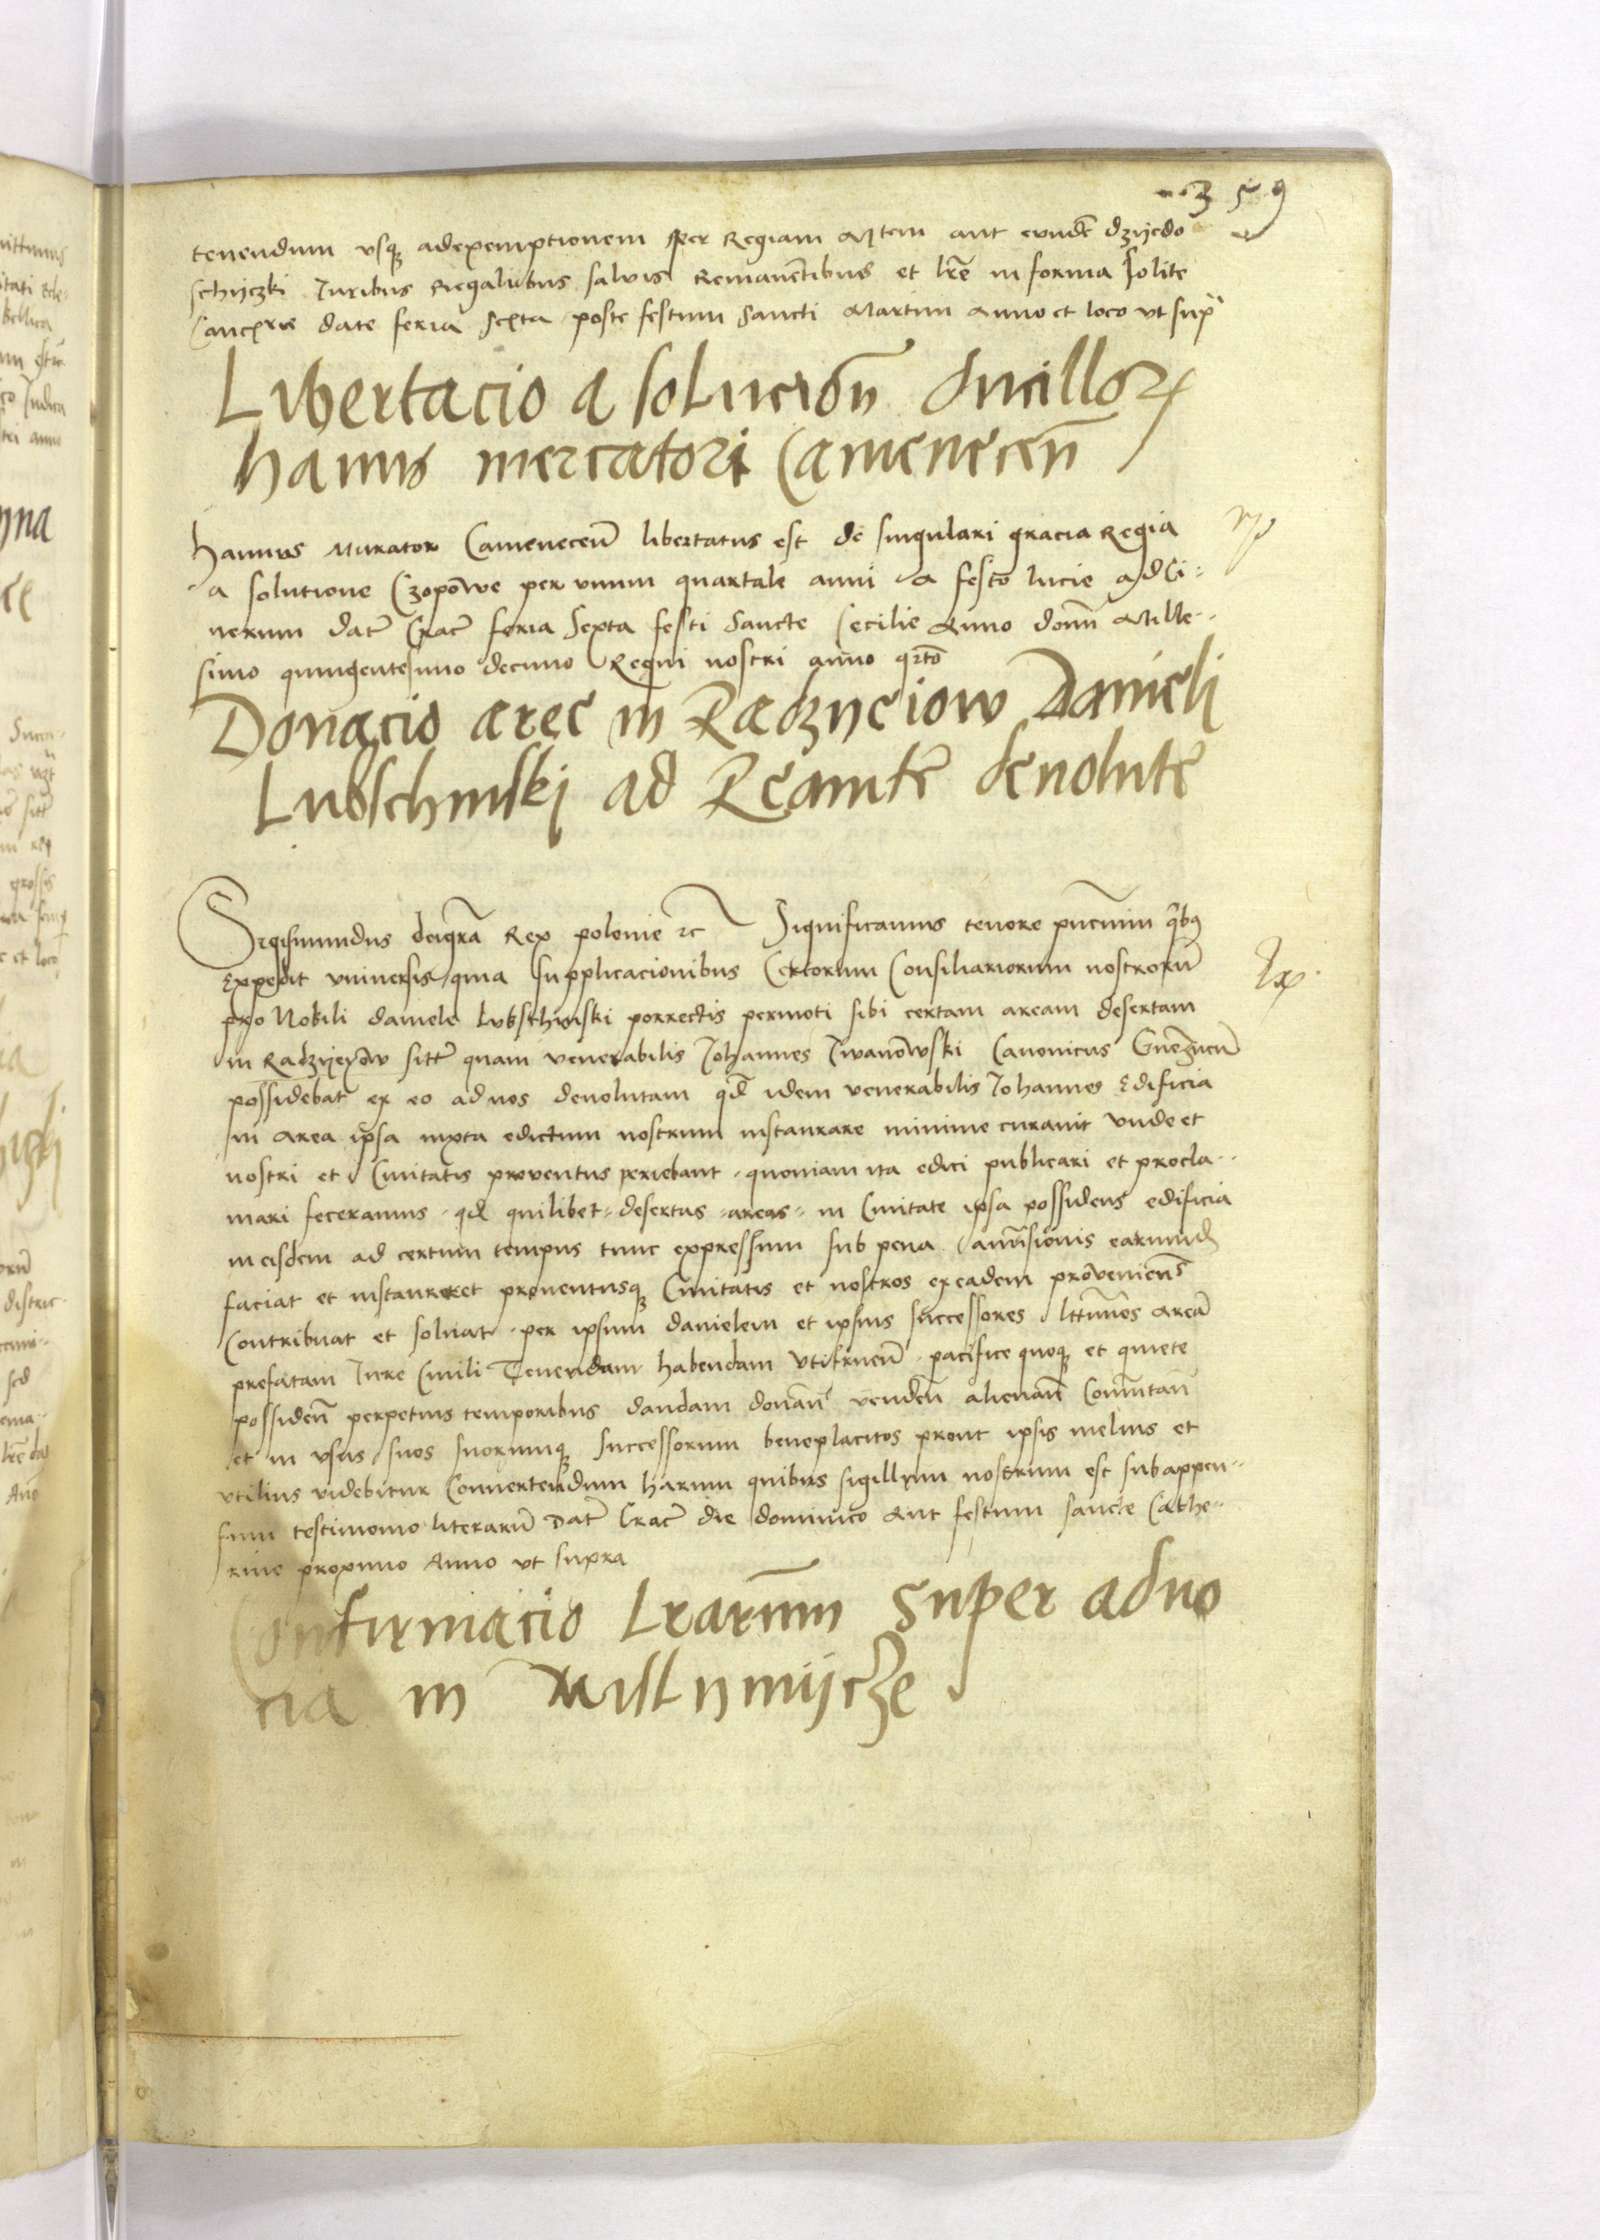 359
tenendum usq adexemptionem per Regiam Mtem aut eundē dzyedo
schyczki Iuribus Regalibus salvis Remanētibus et lrē in forma solite
Cancxrie date feria sexta poste festum Sancti Martini Anno et loco ut supᵃ
Libertacio a soluciōn ducilloꝝ
hanus mercatori Camenecēn
Hannus Murator Camenecen̄ libertatus est de singulari gracia Regia
a solutione Czopōwe per unum quartale anni a festo lucie ad Ci-
nerum dat̄ Crac̄ feria Sexta festi Sancte Cecilie Anno domī Mille-
simo quingentesimo decimo Regni nostri anno qrto
Donacio aree in Radzyeiow Danieli
Lubschinski ad R eamt̄e devolute
Sigismundus deigrā Rex polonie ꝛc Significamus tenore pn̄cium qⁱbꝯ
Expedit universis quia supplicacionibus Certorum Consiliariorum nostrorū
pro Nobili daniele Lubschinski porrectis permoti sibi certam aream desertam
in Radzyeyōw sitt̄ quam venerabilis Johannes Iwanōwski Canonicus Gneznen̄
possidebat ex eo ad nos devolutam qd̄ idem venerabilis Johannes Edificia
in area ipsa iuxta edictum nostrum instaurare minime curavit unde et
nostri et Civitatis proventus periebant quoniam ita edici publicari et procla-
mari feceramus qd̄ quilibet desertas areas in Civitate ipsa possidens edificia
in eisdem ad certum tempus tunc expressum sub pena amissionis earundꝫ
faciat et instauraret proventusq Civitatis et nostros ex eadem provenien̄
Contribuat et solvat per ipsum danielem et ipsius successores lttimos areā
prefatam Iure Civili Tenendam habendam Utifruen̄ pacifice quoq et quiete
possiden̄ perpetuis temporibus dandam donan̄ venden̄ alienan̄ Comutan̄
et in usus suos suorumq successorum beneplacitos prout ipsis melius et
utilius videbitur Convertendum harum quibus sigillum nostrum est subappen-
sum testimonio literarū Dat̄ Crac̄ die dominico Ant festum sancte Cathe-
rine proximo Anno ut supra
Confirmacio Lrarum̄ super advo
cia in Wislnyijcze